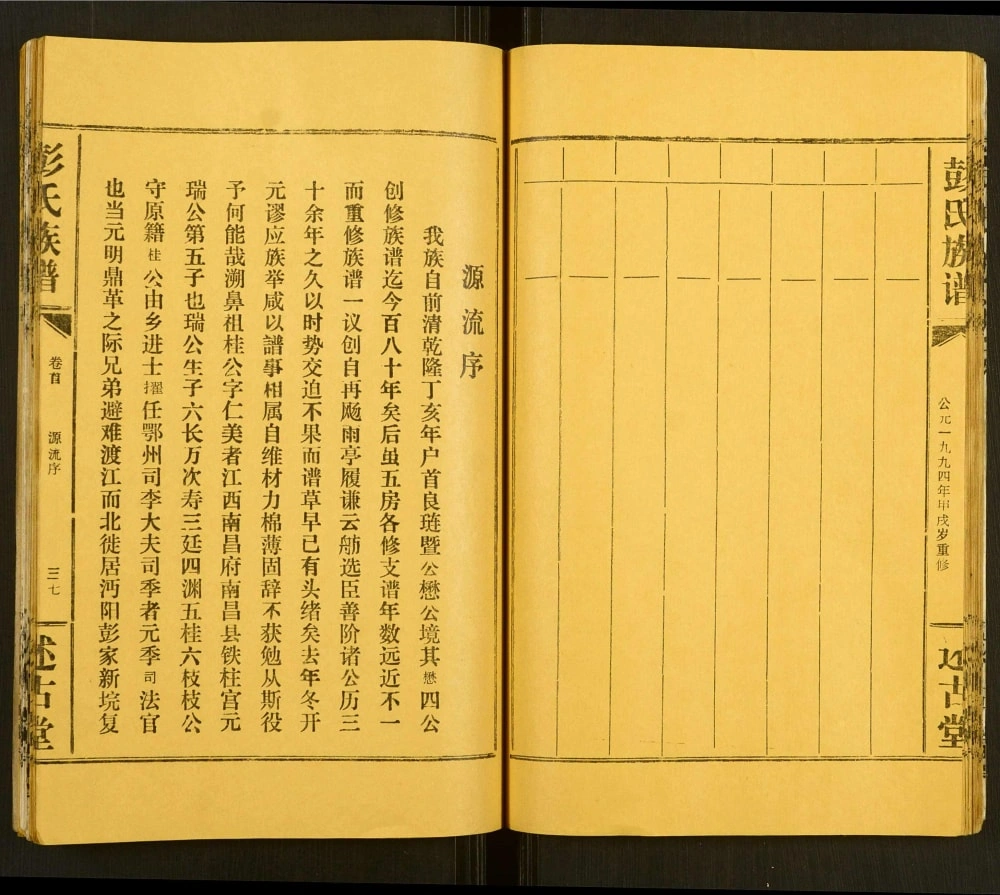 彭氏族谱
公元一九九四年甲戌岁重修
述古堂
源流序
我族自前清乾隆丁亥年户首良琏暨公懋公境其懋四公
创修族谱迄今百八十年矣后虽五房各修支谱年数远近不一
而重修族谱一议创自再飏雨亭履谦云舫选臣善阶诸公历三
十余年之久以时势交迫不果而谱草早已有头绪矣去年冬开
元谬应族举咸以譜事相属自维材力棉薄固辞不获勉从斯役
予何能哉溯鼻祖桂公字仁美者江西南昌府南昌县铁柱宫元
瑞公第五子也瑞公生子六长万次寿三廷四渊五桂六枝枝公
守原籍桂公由乡进士擢任鄂州司李大夫司季者元季司法官
也当元明鼎革之际兄弟避难渡江而北徙居沔阳彭家新垸复
彭氏族谱
卷首
源流序
三七
述古堂